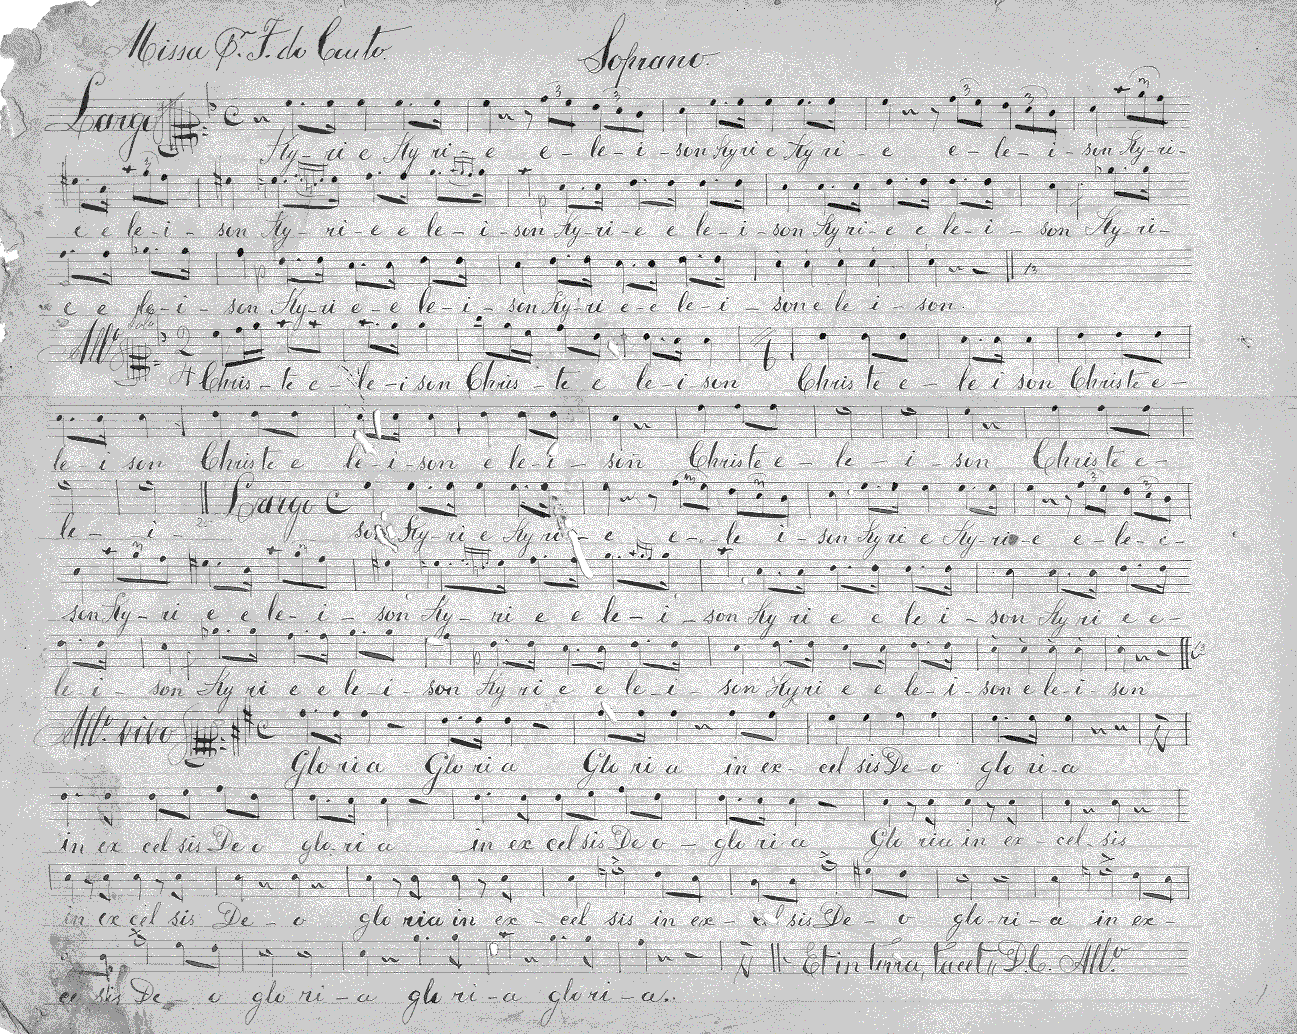 Missa Pr. F. do Couto. Soprano.
Largo
Ky-ri e Ky ri-e e-le-i-son Kyri e Ky ri-e e-le-i-son Ky-ri-
e e le-i-son Ky-ri-e e le-i-son Ky-ri-e e le-i-son Ky ri-e e le-i-son Ky-ri-
e e le-i-son Ky-ri e-e le-i-son Ky-ri e-e le-i-son e le i-son.
Allo 2 4
Chris-te e-le-i son Chris-te e le-i son Chris te e-le i son Christe e-
le-i son Christe e le-i-son e le-i-son Christe e-le-i-son Chris te e-
Largo
le-i-son Ky-ri e Ky ri-e e-le i-son Kyri e Ky-ri-e e-le-e-
son Ky-ri e e le-i-son Ky-ri e e le-i-son Ky ri e e le i-son Ky ri e e-
le-i-son Ky ri e e le-i-son Ky ri e e le-i-son Kyri e e le-i-son e le-i-son
Allo. vivo
Glo ri a Glo ri a Glo ri a in ex-cel sis De-o glo ri-a
in ex cel sis De o glo ri a in ex cel sis De o-glo ri a Glo ria in ex-cel-sis
in ex cel sis De-o glo ria in ex-cel sis in ex-cel sis De-o glo-ri-a in ex-
cel sis De-o glo ri-a glo ri-a glo ri-a.
Et in terra, tacet, D.C. Allo